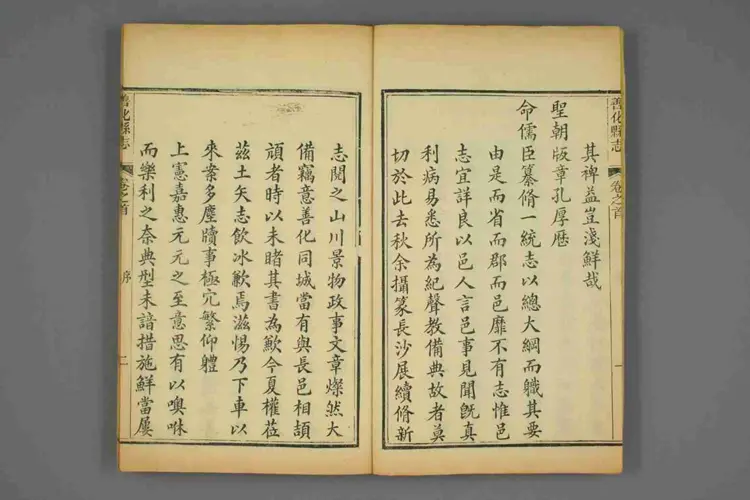 善化縣志
卷之首
一
其裨益豈淺鮮哉
聖朝版章孔厚歷
命儒臣纂脩一統志以總大綱而職其要
由是而省而郡而邑靡不有志惟邑
志宜詳良以邑人言邑事見聞旣真
利病易悉所為紀聲教備典故者莫
切於此去秋余攝篆長沙展續脩新
志閱之山川景物政事文章燦然大
備竊意善化同城當有與長邑相頡
頑者時以未睹其書為歉今夏權莅
茲土矢志飲冰歉焉滋惕乃下車以
來案多塵牘事極宂繁仰體
上憲嘉惠元元之至意思有以噢咻
而樂利之奈典型未諳措施鮮當屢
善化縣志
卷之首
序
二